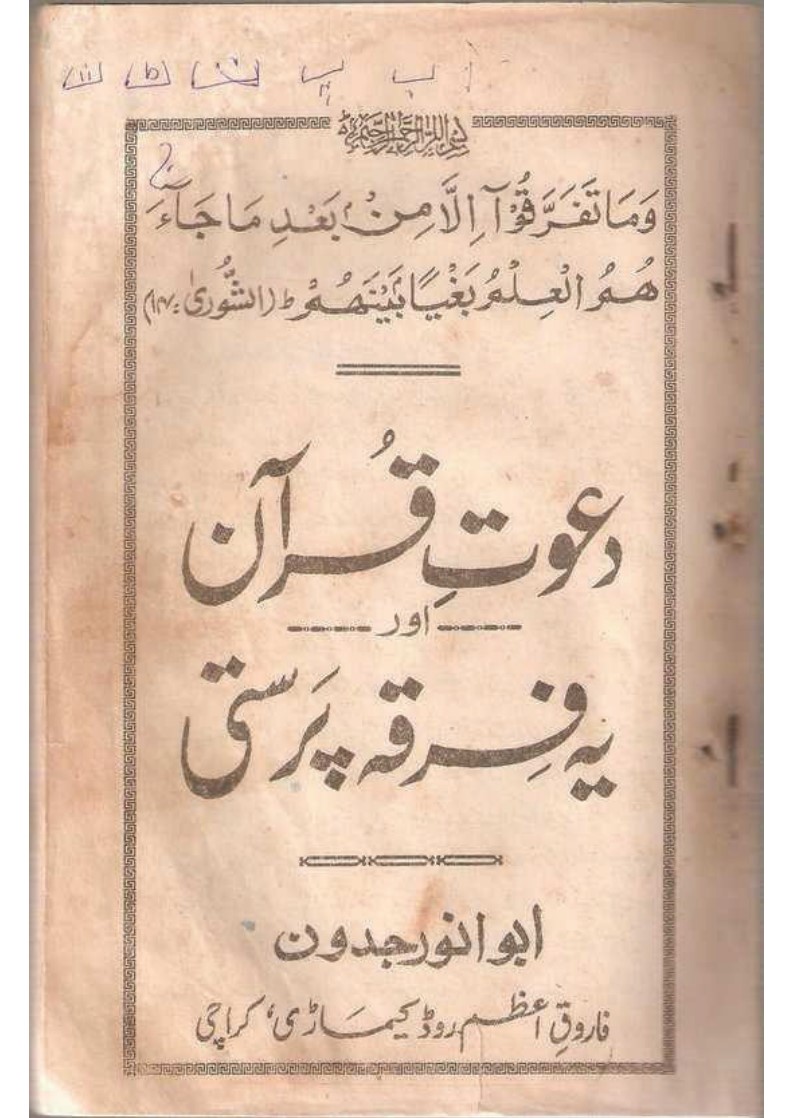 بسم اللہ الرحمن الرحیم
وَمَا تَفَرَّقُوْٓا اِلَّا مِنْۢ بَعْدِ مَا جَآءَ
هُمُ الْعِلْمُ بَغْيًۢا بَيْنَهُمْ ط (الشُّورىٰ:
دعوتِ قُرآن
اور
یہ فِرقہ پَرستی
ابو انور جدون
فاروقِ اعظم روڈ کیماڑی، کراچی